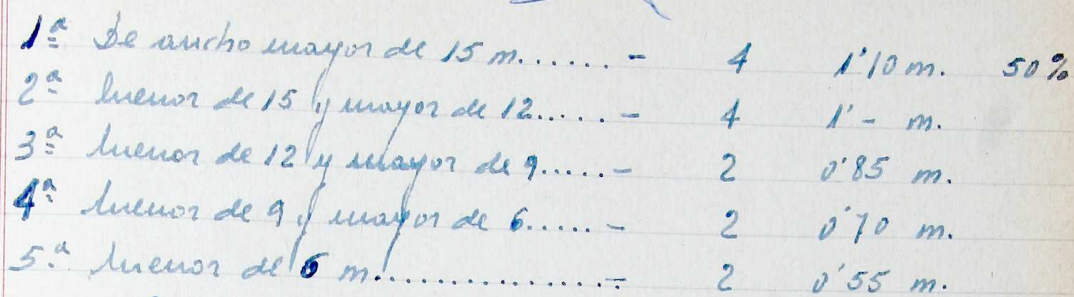 1ª De ancho mayor de 15 m....... - 4 1'10 m. 50%
2ª Menor de 15 y mayor de 12..... - 4 1'- m.
3ª Menor de 12 y mayor de 9.....- 2 0'85 m.
4ª Menor de 9 y mayor de 6..... - 2 0'70 m.
5ª Menor de 6 m................- 2 0'55 m.